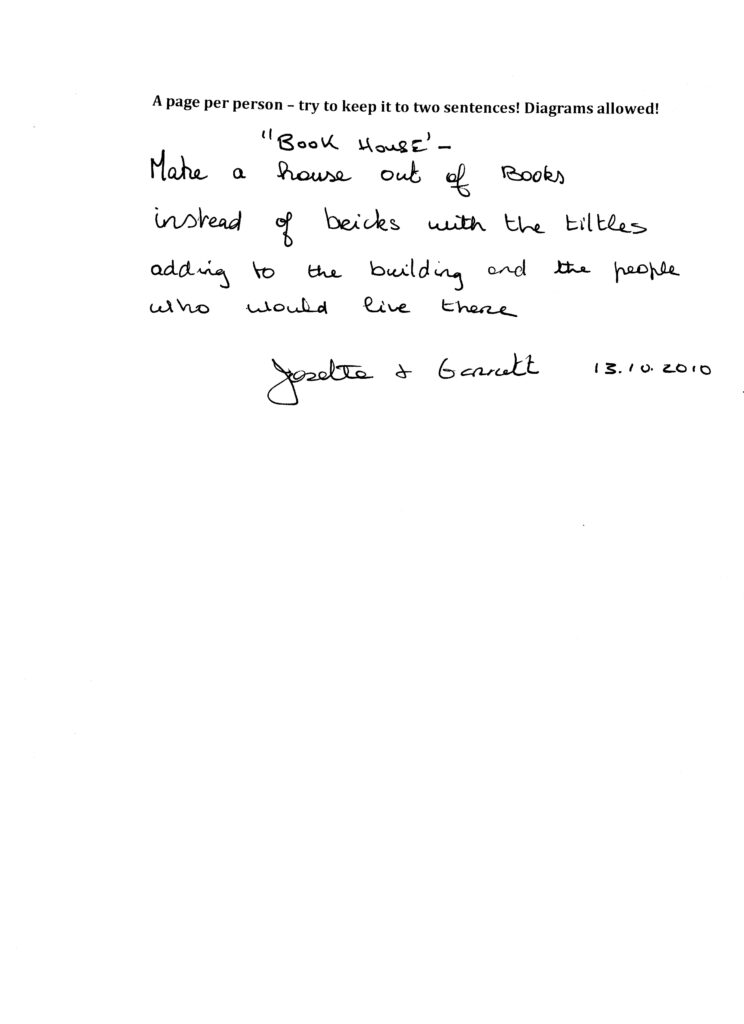 A page per person – try to keep it to two sentences! Diagrams allowed!
"Book House' –
Make a house out of Books
instead of bricks with the tiltles
adding to the building and the people
who would live there
Josette & Garrett 13.10.2010